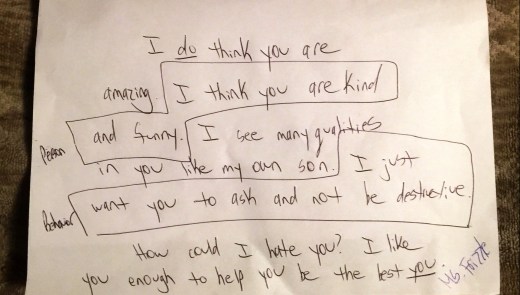 I do think you are
amazing. I think you are kind
Person
and funny. I see many qualities
in you like my own son. I just
Behavior
want you to ask and not be destructive.
How could I hate you? I like
you enough to help you be the best you.
Ms. Frizzle